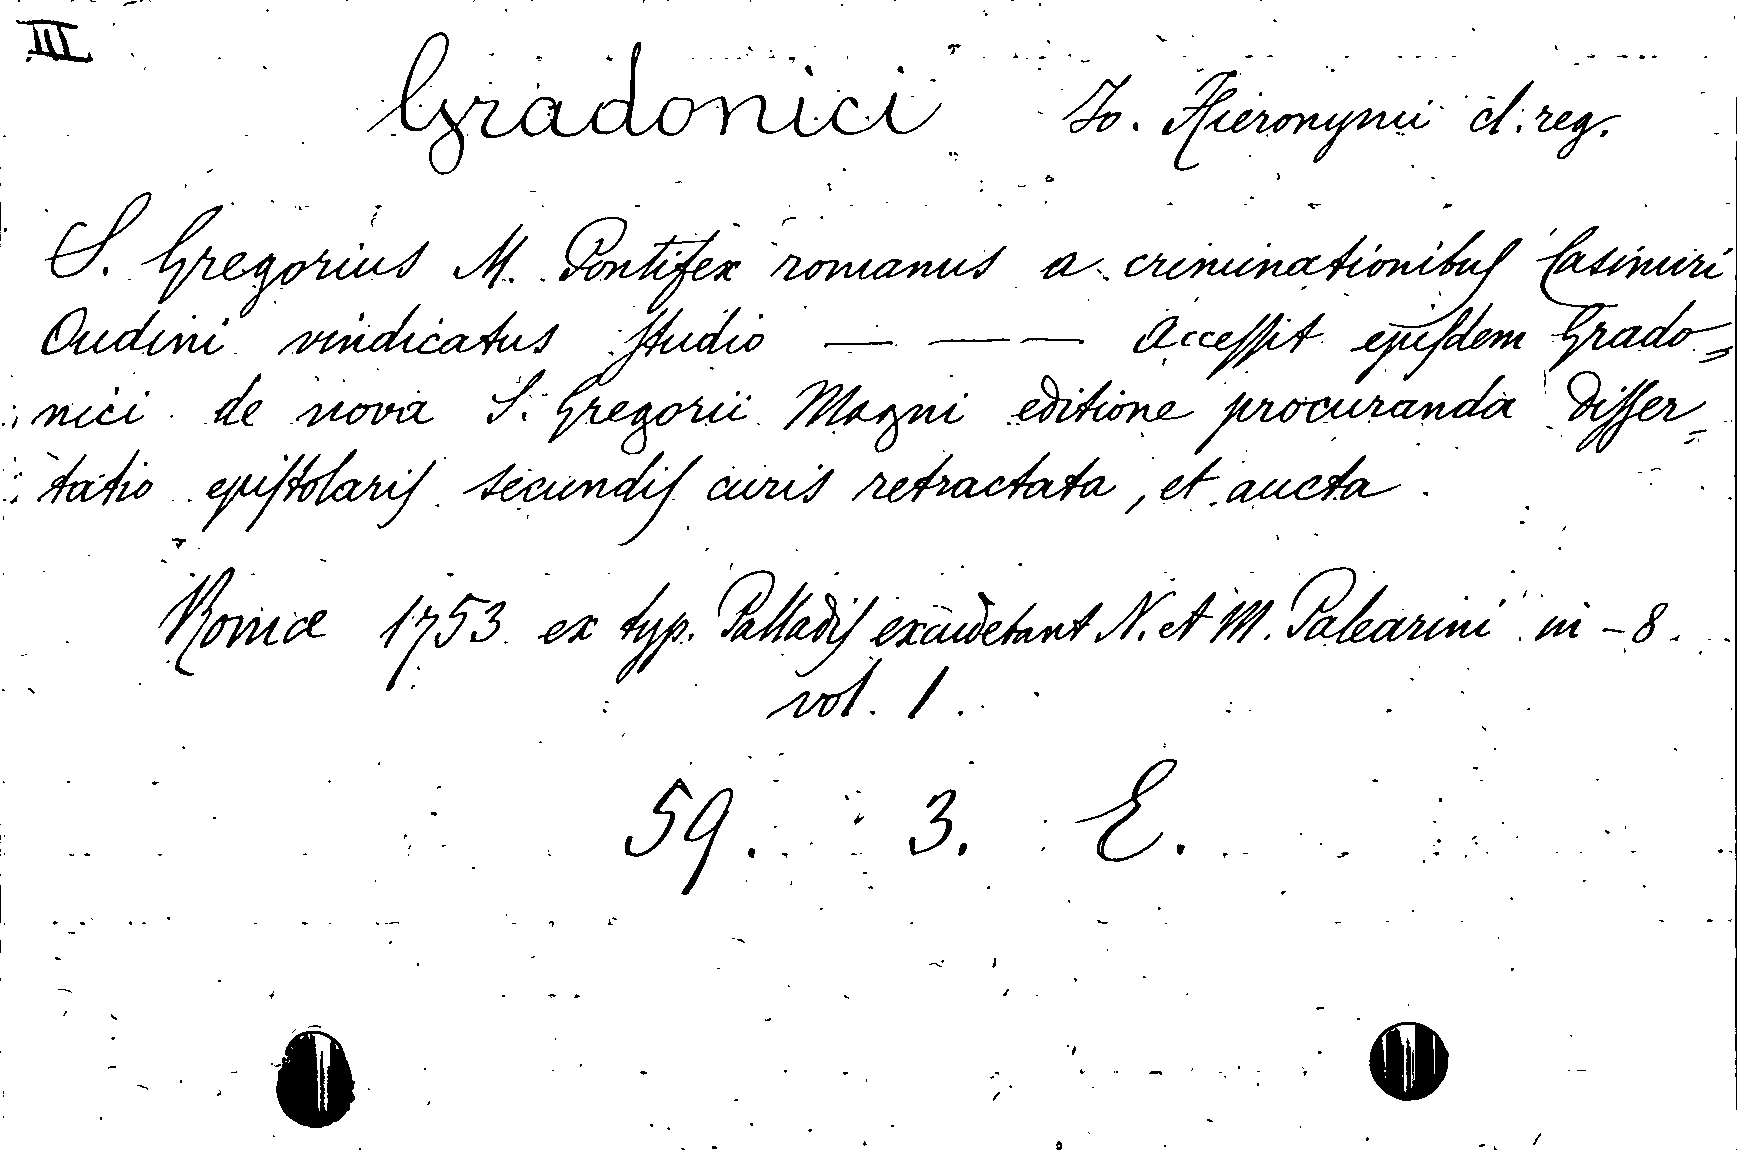 III
Gradonici Jo. Hieronymi cl. reg.
S. Gregorius M. Pontifex romanus a criminationibus Casimiri
Oudini vindicatus studio — — — Accessit ejusdem Grado=
nici de nova S. Gregorii Magni editione procuranda disser=
tatio epistolaris secundis curis retractata, et aucta.
Romæ 1753 ex typ. Palladis excudebant N. et M. Palearini in-8.
vol. 1.
59. 3. E.